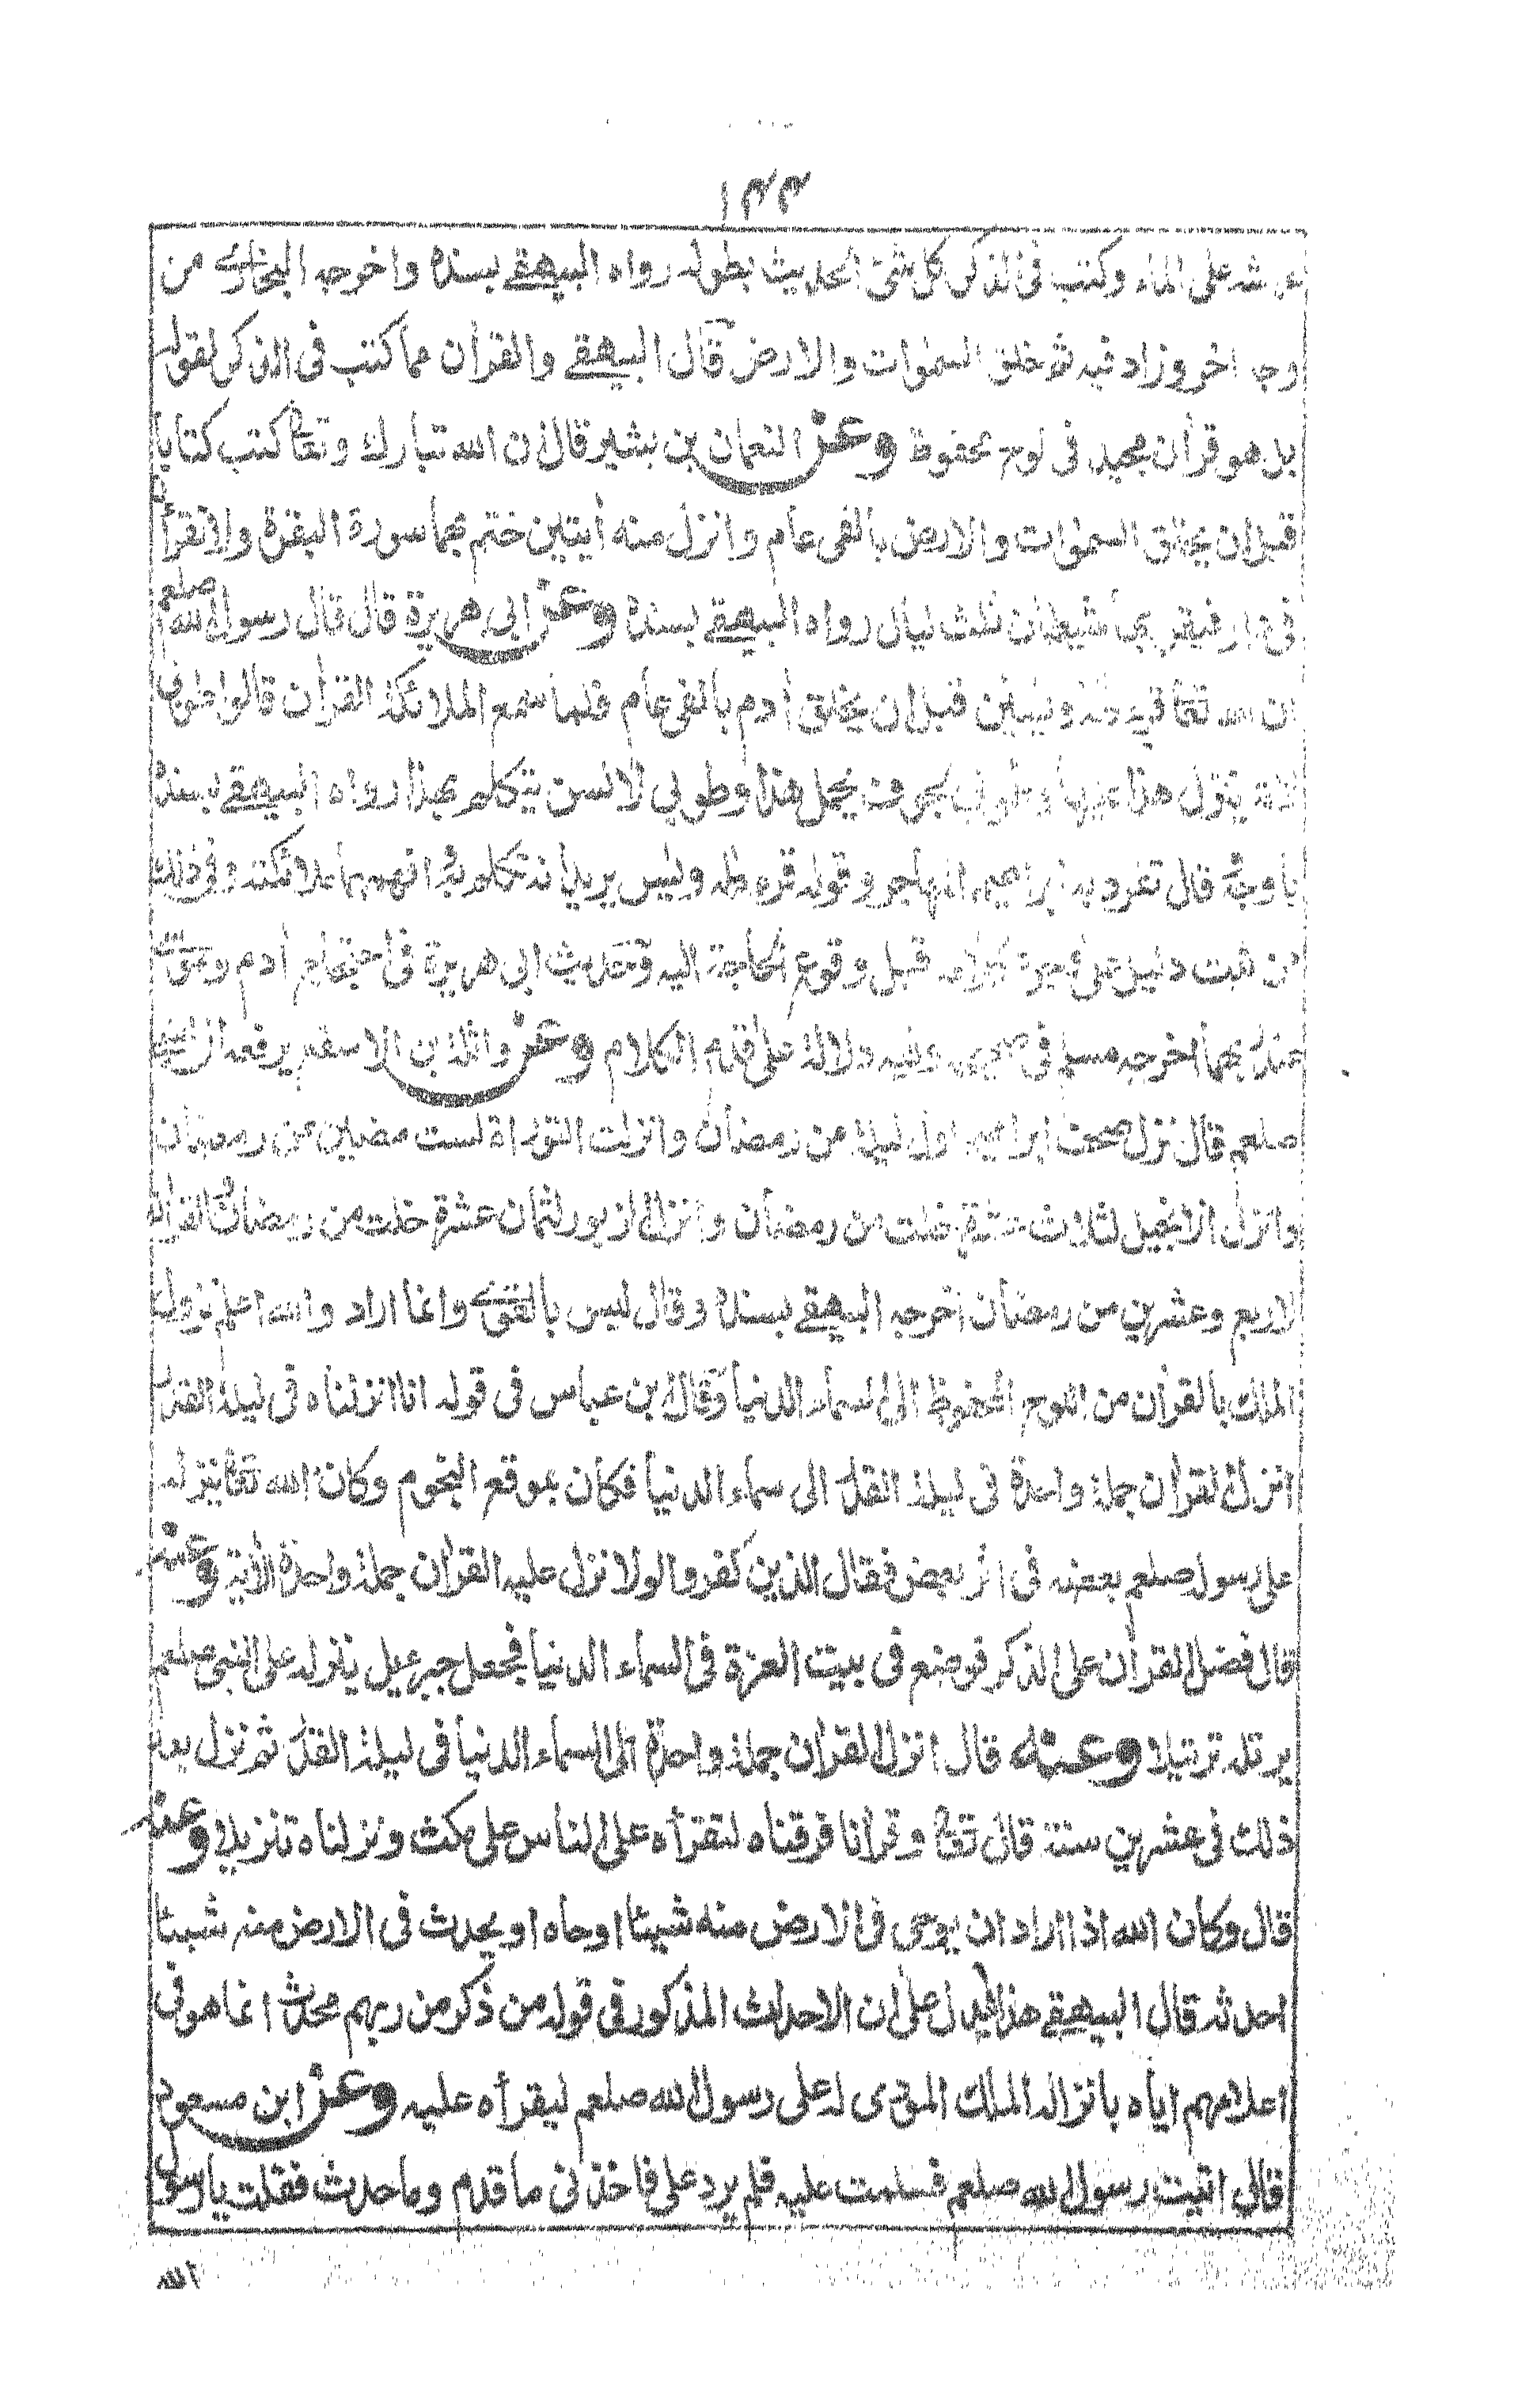 ١٤٤
عرشه على الماء وكتب فى الذكر كل شئ الحديث بطوله رواه البيهقے بسنده واخرجه البخارے من
وجه اخر وزاد فيه ثم خلق السمٰوات والارض قال البيهقے والقرأن مما كتب فى الذكر لقوله
بل هو قرأن مجيد فى لوح محفوظ وعن النعمان بن بشير قال ان الله تبارك وتعا كتب كتابا
قبل ان يخلق السمٰوات والارض بالفى عام وانزل منه أيتين ختم بهما سورة البقرة ولا تقرأن
فى دار فيقربها شيطان ثلث ليال رواه البيهقے بسنده وعن ابى هريرة قال قال رسول الله صلعم
ان الله تعا قرء طه ويسين قبل ان يخلق أدم بالفى عام فلما سمع الملائكة القرأن قالوا طوبى
لامة ينزل هذا عليها وطوبى لجوف يحمل هذا وطوبى لالسن تتكلم بهذا رواه البيهقے بسنده
باوجه قال تفرد به ابراهيم المهاجر وقوله قرء طه ويٰس يريد انه تكلم به وافهمهما ملائكته وفى ذلك
ان ثبت دليل على وجود كلامه قبل وقوع الحاجة اليه وحديث ابى هريرة فى احتجاج أدم وموسٰے
عند ربهما اخرجه مسلم فى صحيحه وفيه دلالة على قدم الكلام وعن واثلة بن الاسقع يرفعه ان النبے
صلعم قال نزل صحف ابراهيم اول ليلة من رمضان وانزلت التوراة لست مضين من رمضان
وانزل الانجيل لثلاث عشرة خلت من رمضان وانزل الزبور لثمان عشرة خلت من رمضان والقرأن
لاربع وعشرين من رمضان اخرجه البيهقے بسنده وقال ليس بالقوے وانما اراد والله اعلم نزول
الملك بالقرأن من اللوح المحفوظ الى السماء الدنيا وقال ابن عباس فى قوله انا انزلناه فى ليلة القدر
انزل القرأن جملة واحدة فى ليلة القدر الى سماء الدنيا فكان بموقع النجوم وكان الله تعا ينزله
على رسوله صلعم بعضه فى اثر بعض فقال الذين كفروا لولا نزل عليه القرأن جملة واحدة الأية وعنه
قال فصل القرأن على الذكر فوضع فى بيت العزة فى السماء الدنيا فجعل جبرءيل ينزله على النبى صلعم
يرتله ترتيلا وعنه قال انزل القرأن جملة واحدة الى السماء الدنيا فى ليلة القدر ثم نزل بعد
ذلك فى عشرين سنة قال تعا وقرأنا فرقناه لتقرأه على الناس على مكث ونزلناه تنزيلا وعنه
قال وكان الله اذا اراد ان يوحى فى الارض منه شيئا اوحاه او يحدث فى الارض منه شيئا
احدثه قال البيهقے هذا يدل على ان الاحداث المذكور فى قوله من ذكر من ربهم محدث انما هو فى
اعلامهم اياه بانزاله الملك المؤدى له على رسول الله صلعم ليقرأه عليه وعن ابن مسعود
قال اتيت رسول الله صلعم فسلمت عليه فلم يرد على فاخذنى ما قدم وما حدث فقلت يا رسول
الله